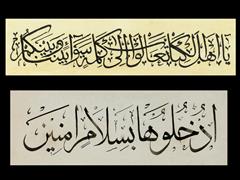 يَا أَهْلَ الْكِتَابِ تَعَالَوْا إِلَى كَلِمَةٍ سَوَاءٍ بَيْنَنَا وَبَيْنَكُمْ
اُدْخُلُوهَا بِسَلَامٍ آمِنِينَ